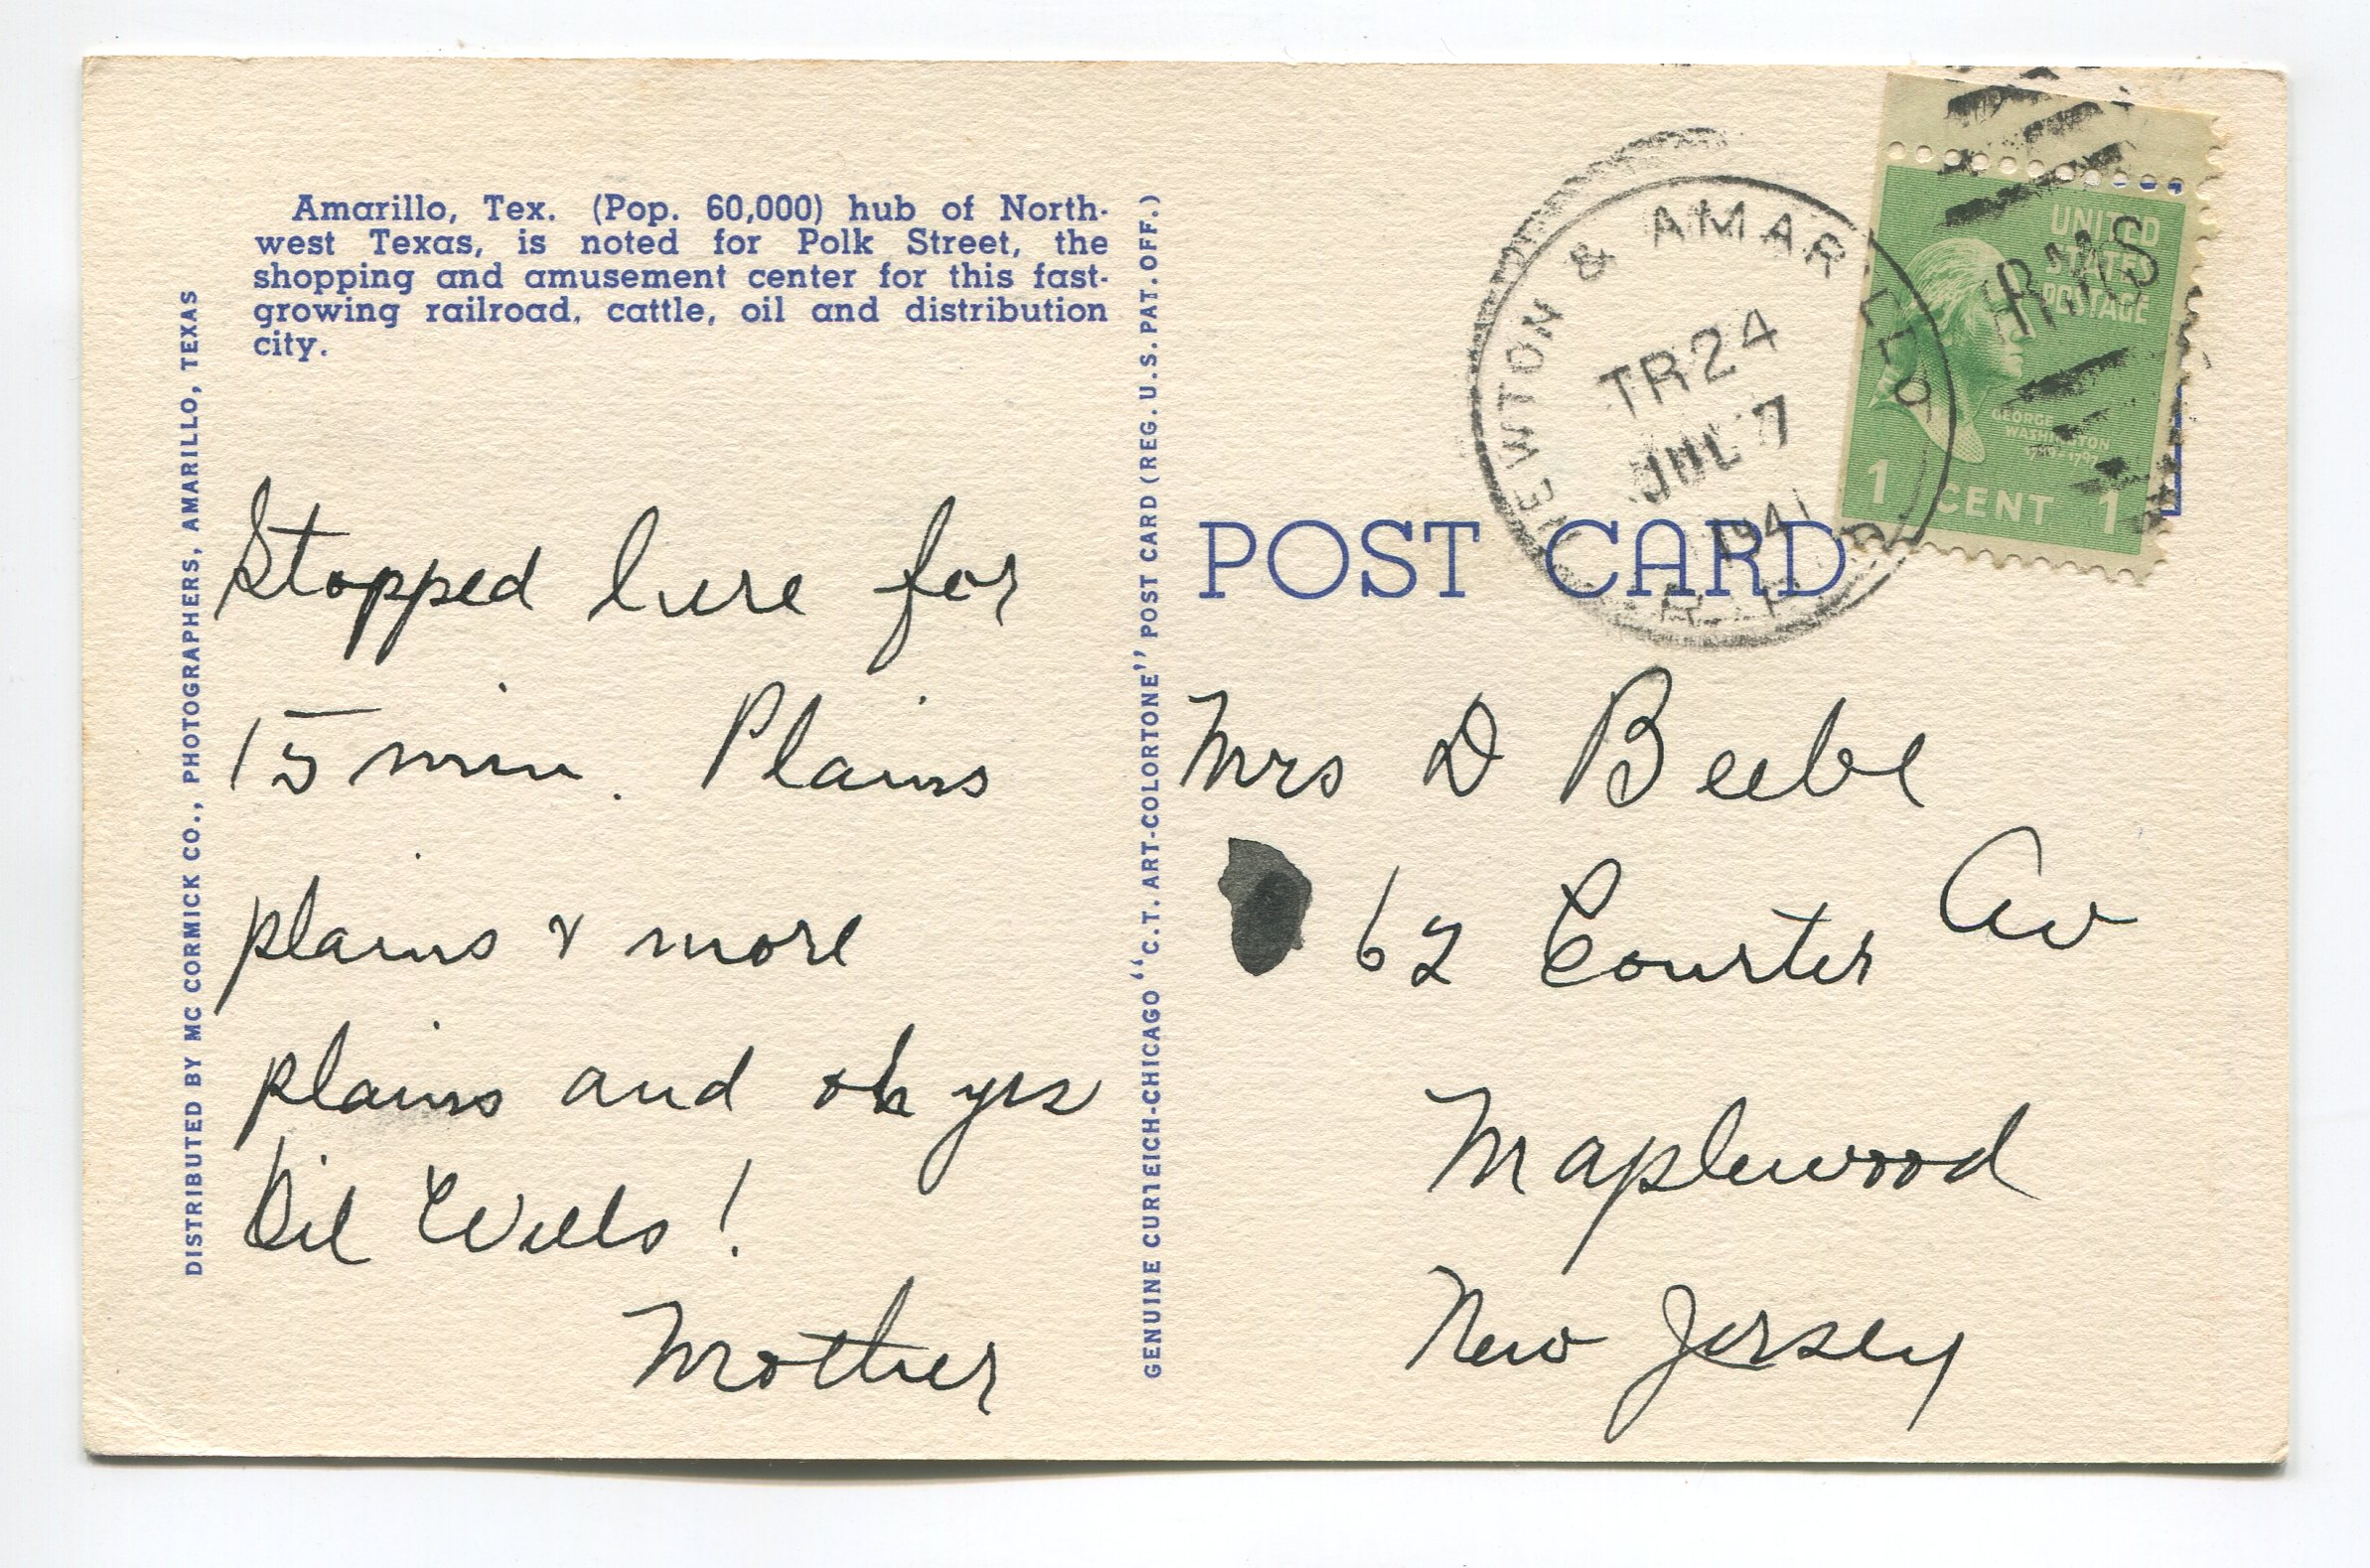 Amarillo, Tex. (Pop. 60,000) hub of North-
west Texas, is noted for Polk Street, the
shopping and amusement center for this fast-
growing railroad, cattle, oil and distribution
city.
DISTRIBUTED BY MC CORMICK CO., PHOTOGRAPHERS, AMARILLO, TEXAS
Stopped here for
15 min. Plains
plains & more
plains and oh yes
Oil Wells!
Mother
GENUINE CURTEICH-CHICAGO "C.T. ART-COLORTONE" POST CARD (REG. U.S. PAT. OFF.)
NEWTON & AMARILLO
TR 24
JUL 7
1941
R.P.O.
RMS
UNITED
STATES
POSTAGE
GEORGE
WASHINGTON
1789-1797
1 CENT 1
POST CARD
Mrs D Beebe
62 Courter Av
Maplewood
New Jersey